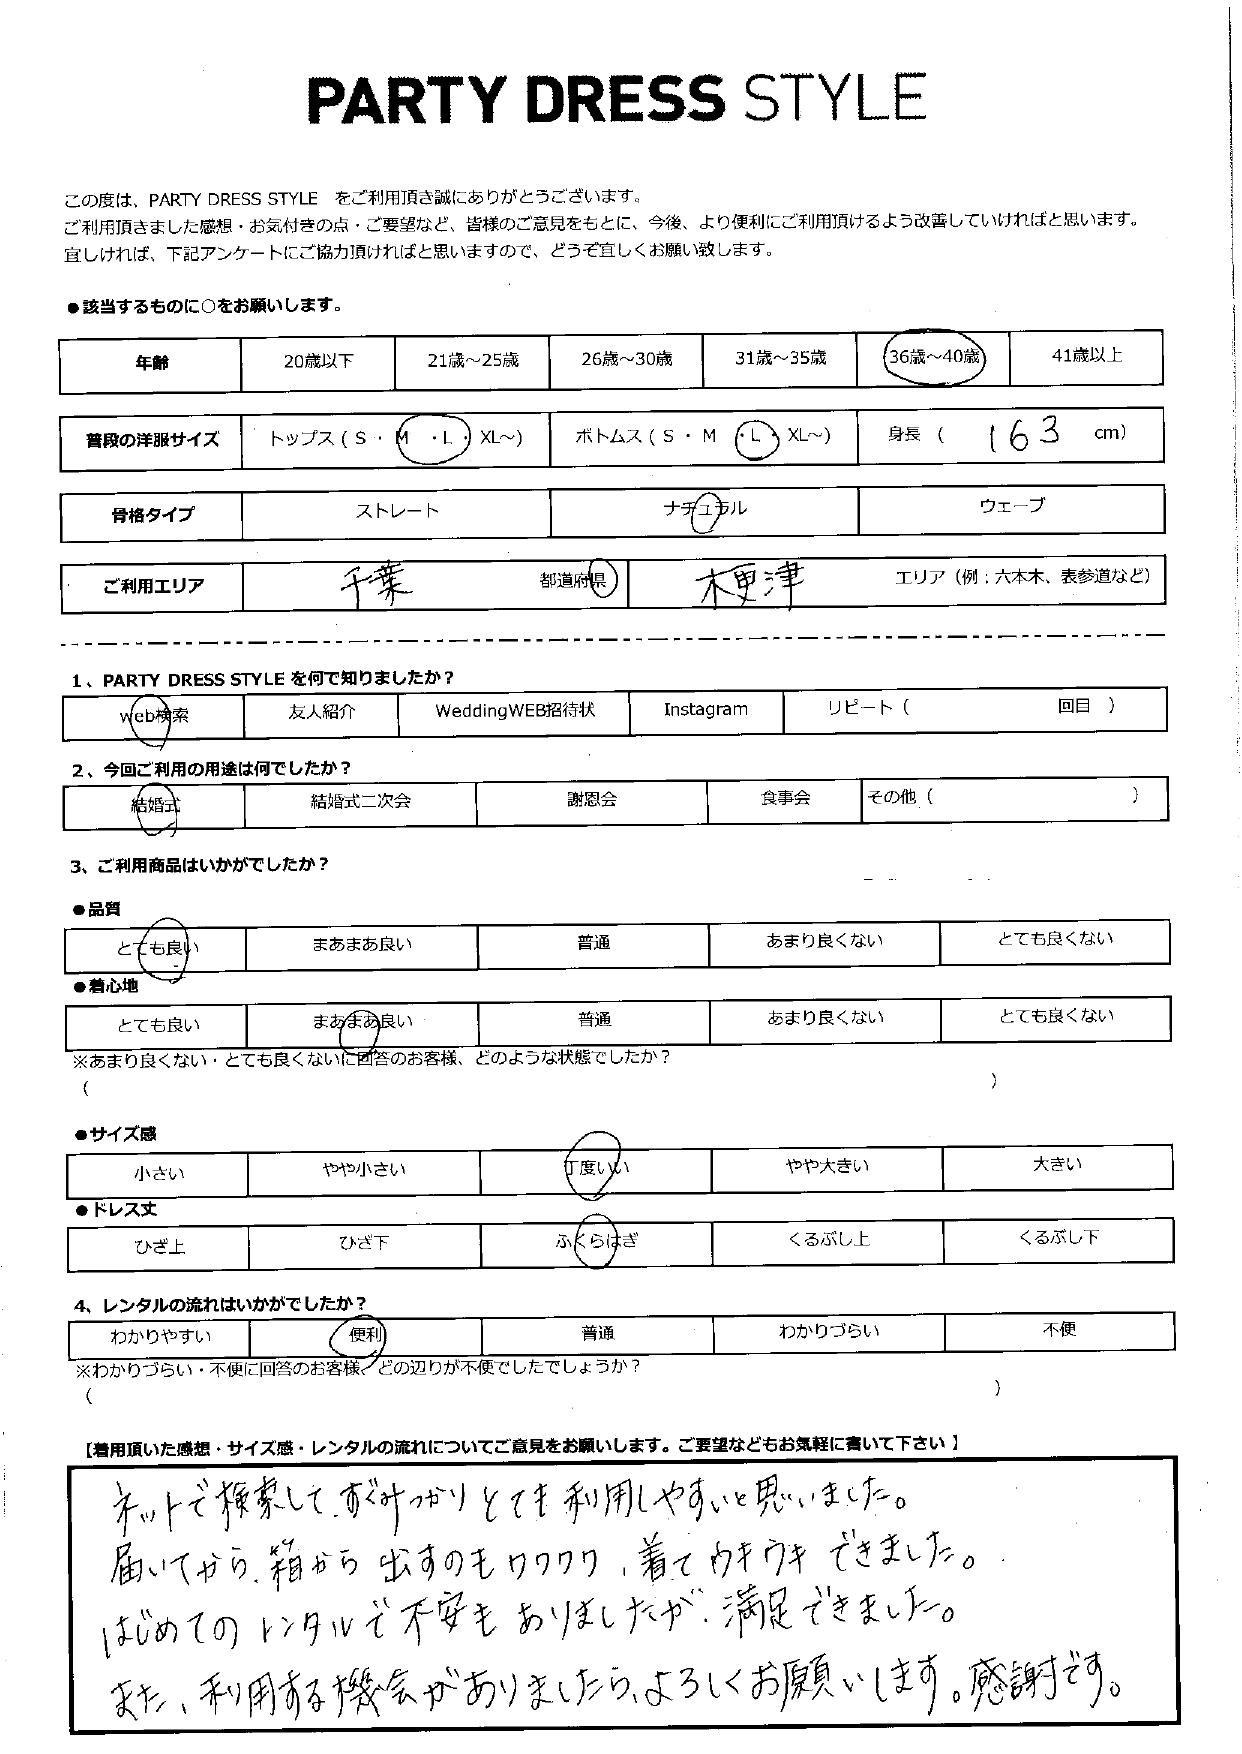 PARTY DRESS STYLE
この度は、PARTY DRESS STYLE をご利用頂き誠にありがとうございます。
ご利用頂きました感想・お気付きの点・ご要望など、皆様のご意見をもとに、今後、より便利にご利用頂けるよう改善していければと思います。
宜しければ、下記アンケートにご協力頂ければと思いますので、どうぞ宜しくお願い致します。
●該当するものに○をお願いします。
年齢 20歳以下 21歳～25歳 26歳～30歳 31歳～35歳 36歳～40歳 41歳以上
普段の洋服サイズ トップス ( S ・ M ・L・ XL～) ボトムス ( S ・ M ・L・ XL～) 身長 ( 163 cm)
骨格タイプ ストレート ナチュラル ウェーブ
ご利用エリア 千葉 都道府県 木更津 エリア（例：六本木、表参道など）
1、PARTY DRESS STYLE を何で知りましたか？
web検索 友人紹介 WeddingWEB招待状 Instagram リピート（ 回目 ）
2、今回ご利用の用途は何でしたか？
結婚式 結婚式二次会 謝恩会 食事会 その他（ ）
3、ご利用商品はいかがでしたか？
●品質
とても良い まあまあ良い 普通 あまり良くない とても良くない
●着心地
とても良い まあまあ良い 普通 あまり良くない とても良くない
※あまり良くない・とても良くないに回答のお客様、どのような状態でしたか？
（ ）
●サイズ感
小さい やや小さい 丁度いい やや大きい 大きい
●ドレス丈
ひざ上 ひざ下 ふくらはぎ くるぶし上 くるぶし下
4、レンタルの流れはいかがでしたか？
わかりやすい 便利 普通 わかりづらい 不便
※わかりづらい・不便に回答のお客様、どの辺りが不便でしたでしょうか？
（ ）
【着用頂いた感想・サイズ感・レンタルの流れについてご意見をお願いします。ご要望などもお気軽に書いて下さい 】
ネットで検索して、すぐみつかりとても利用しやすいと思いました。
届いてから、箱から出すのもワクワク、着てウキウキできました。
はじめてのレンタルで不安もありましたが、満足できました。
また、利用する機会がありましたら、よろしくお願いします。感謝です。